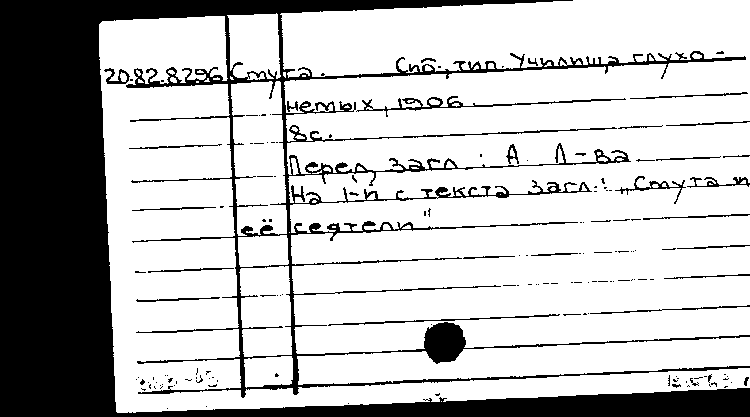 20.82.8296 Смута. Спб., тип. Училища глухо-
немых, 1906.
8с.
Перед загл.: А Л-ва
На 1-й с текста загл.: „Смута и
её сеятели"